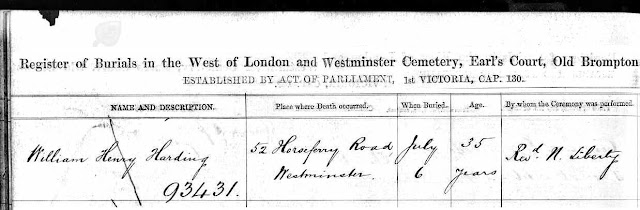 Register of Burials in the West of London and Westminster Cemetery, Earl's Court, Old Brompton
ESTABLISHED BY ACT OF PARLIAMENT, 1st VICTORIA, CAP. 130.
NAME AND DESCRIPTION. Place where Death occurred. When Buried. Age. By whom the Ceremony was performed.
William Henry Harding 52 Horseferry Road July 35 Revd. N. Liberty
93431. Westminster. 6 years